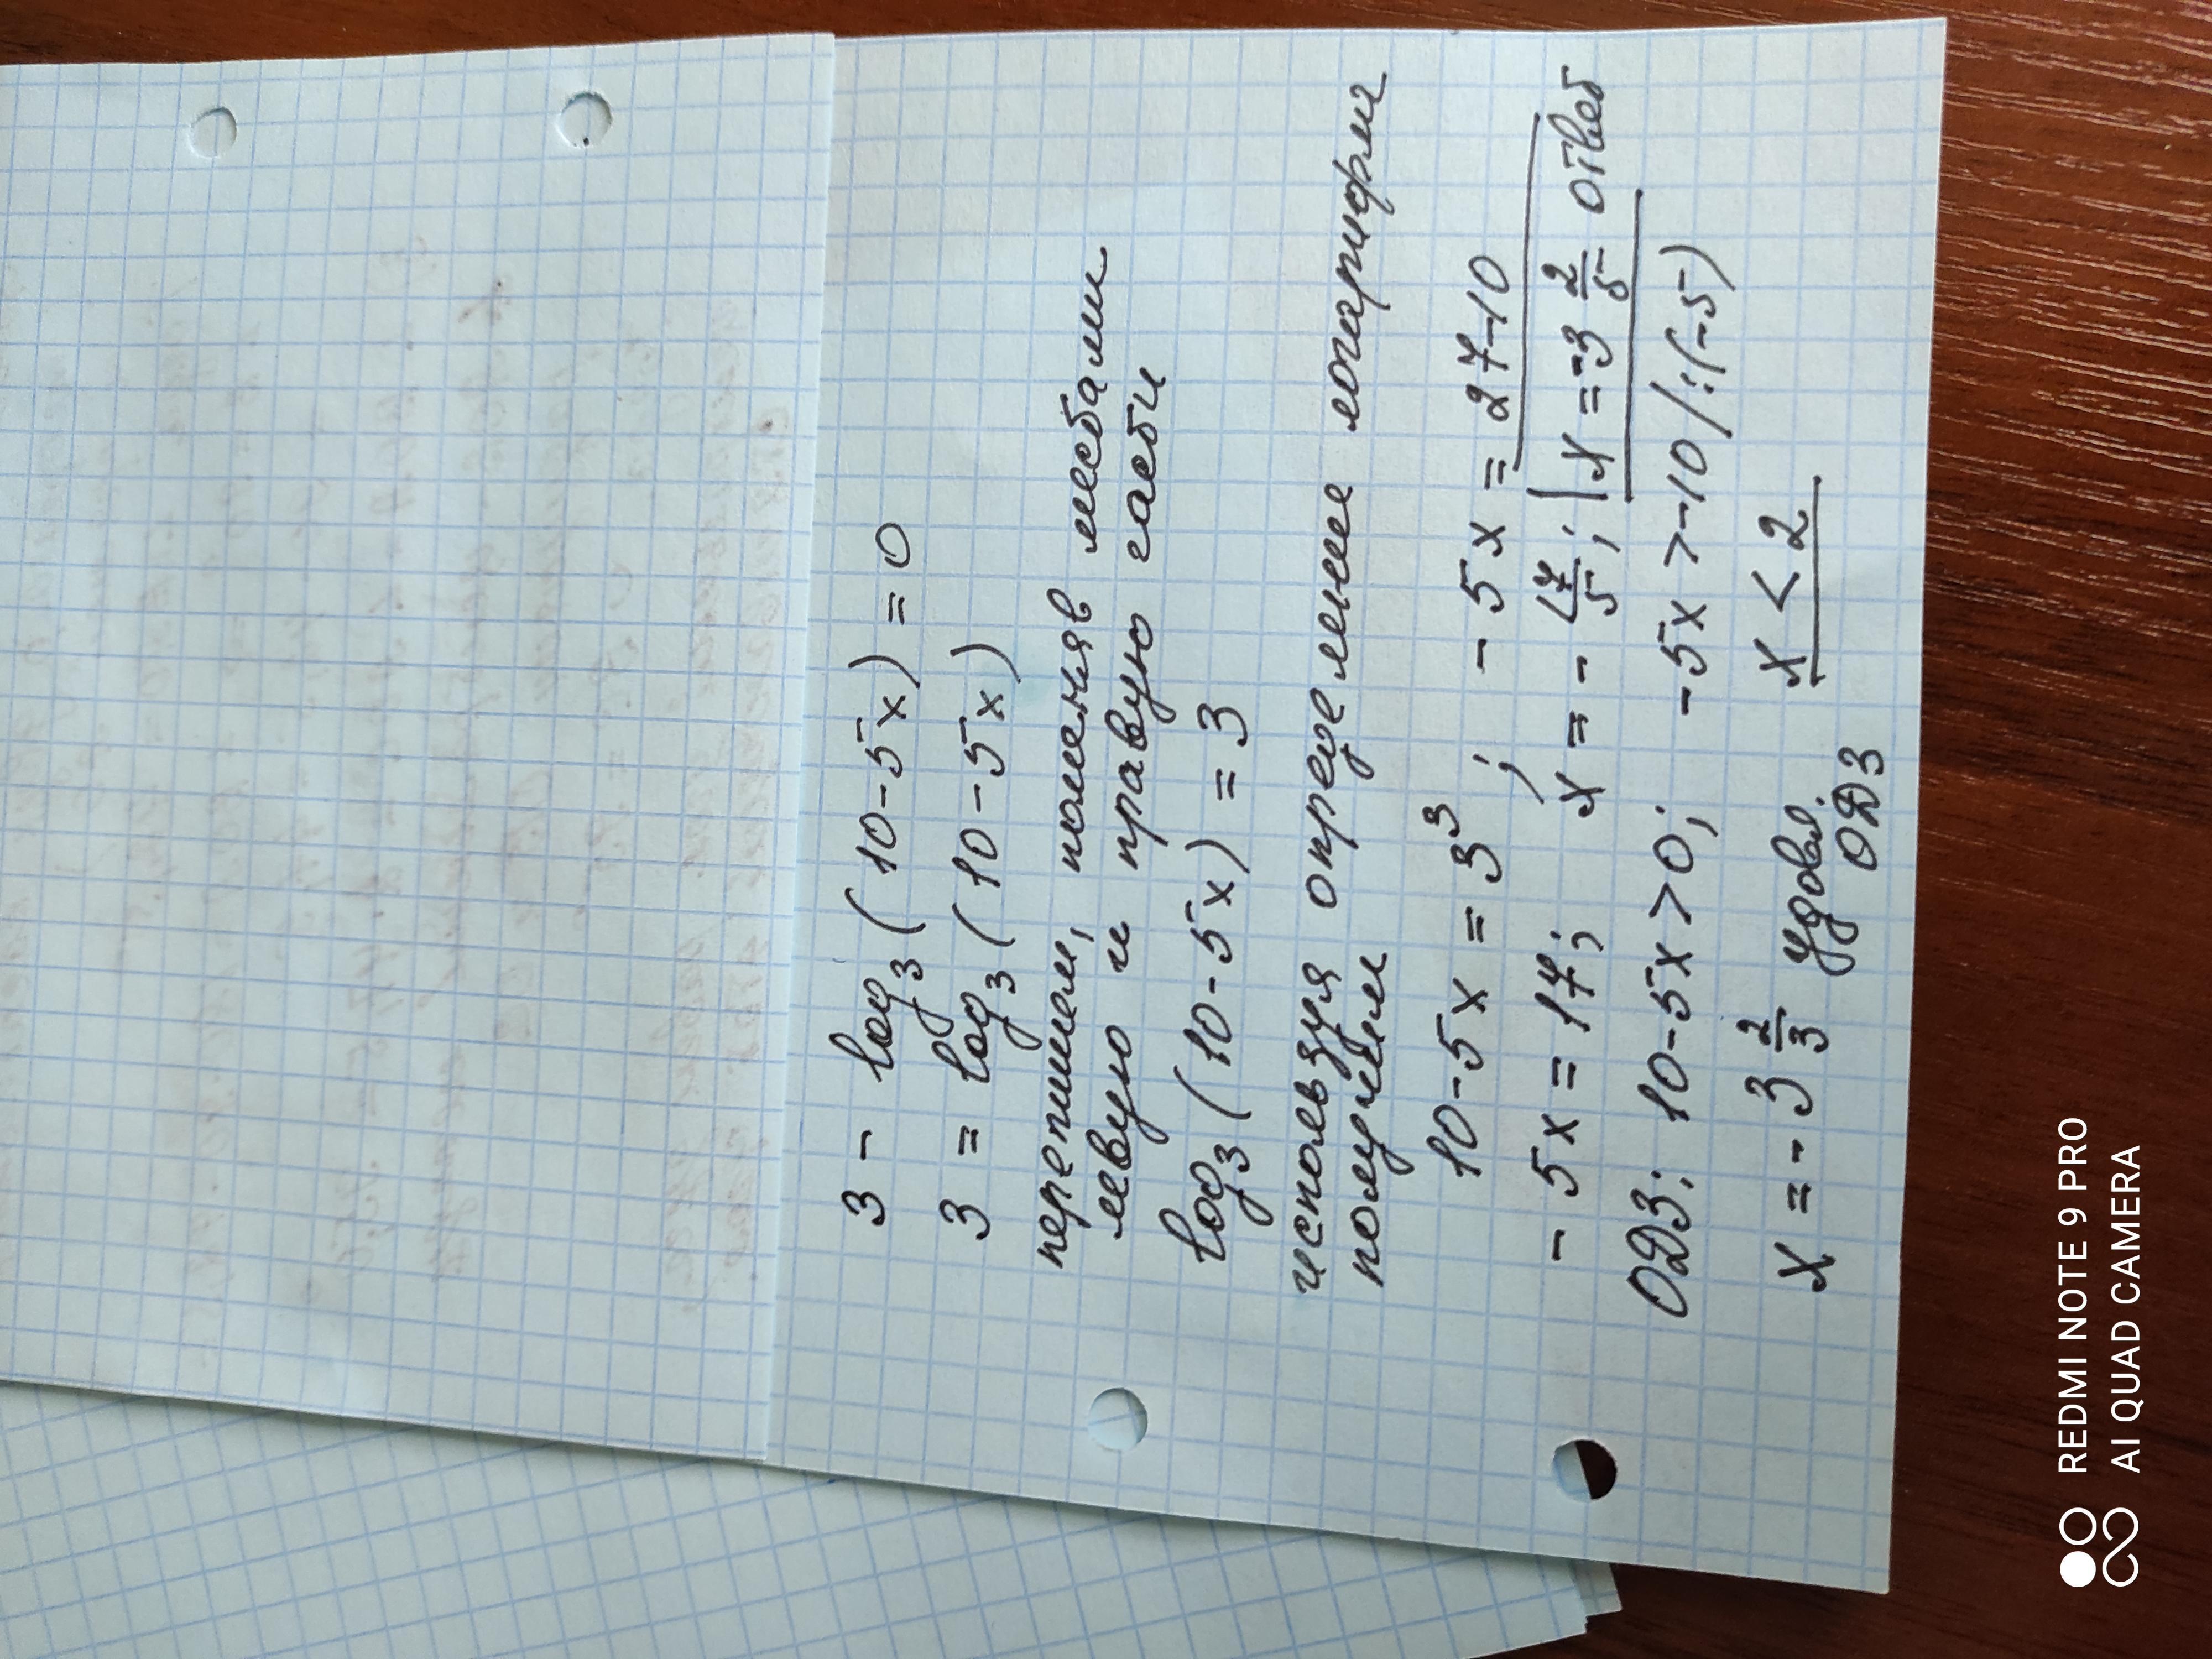 3 - log₃(10-5x) = 0
3 = log₃(10-5x)
перепишем, поменяв местами
левую и правую части
log₃(10-5x) = 3
используя определение логарифма
получим
10-5x = 3³ ; -5x = 27-10
-5x = 17; x = - 17/5; x = -3 2/5 ответ
ОДЗ: 10-5x>0; -5x>-10/:(-5)
x<2
x = -3 2/3 удовл.
ОДЗ
REDMI NOTE 9 PRO
AI QUAD CAMERA